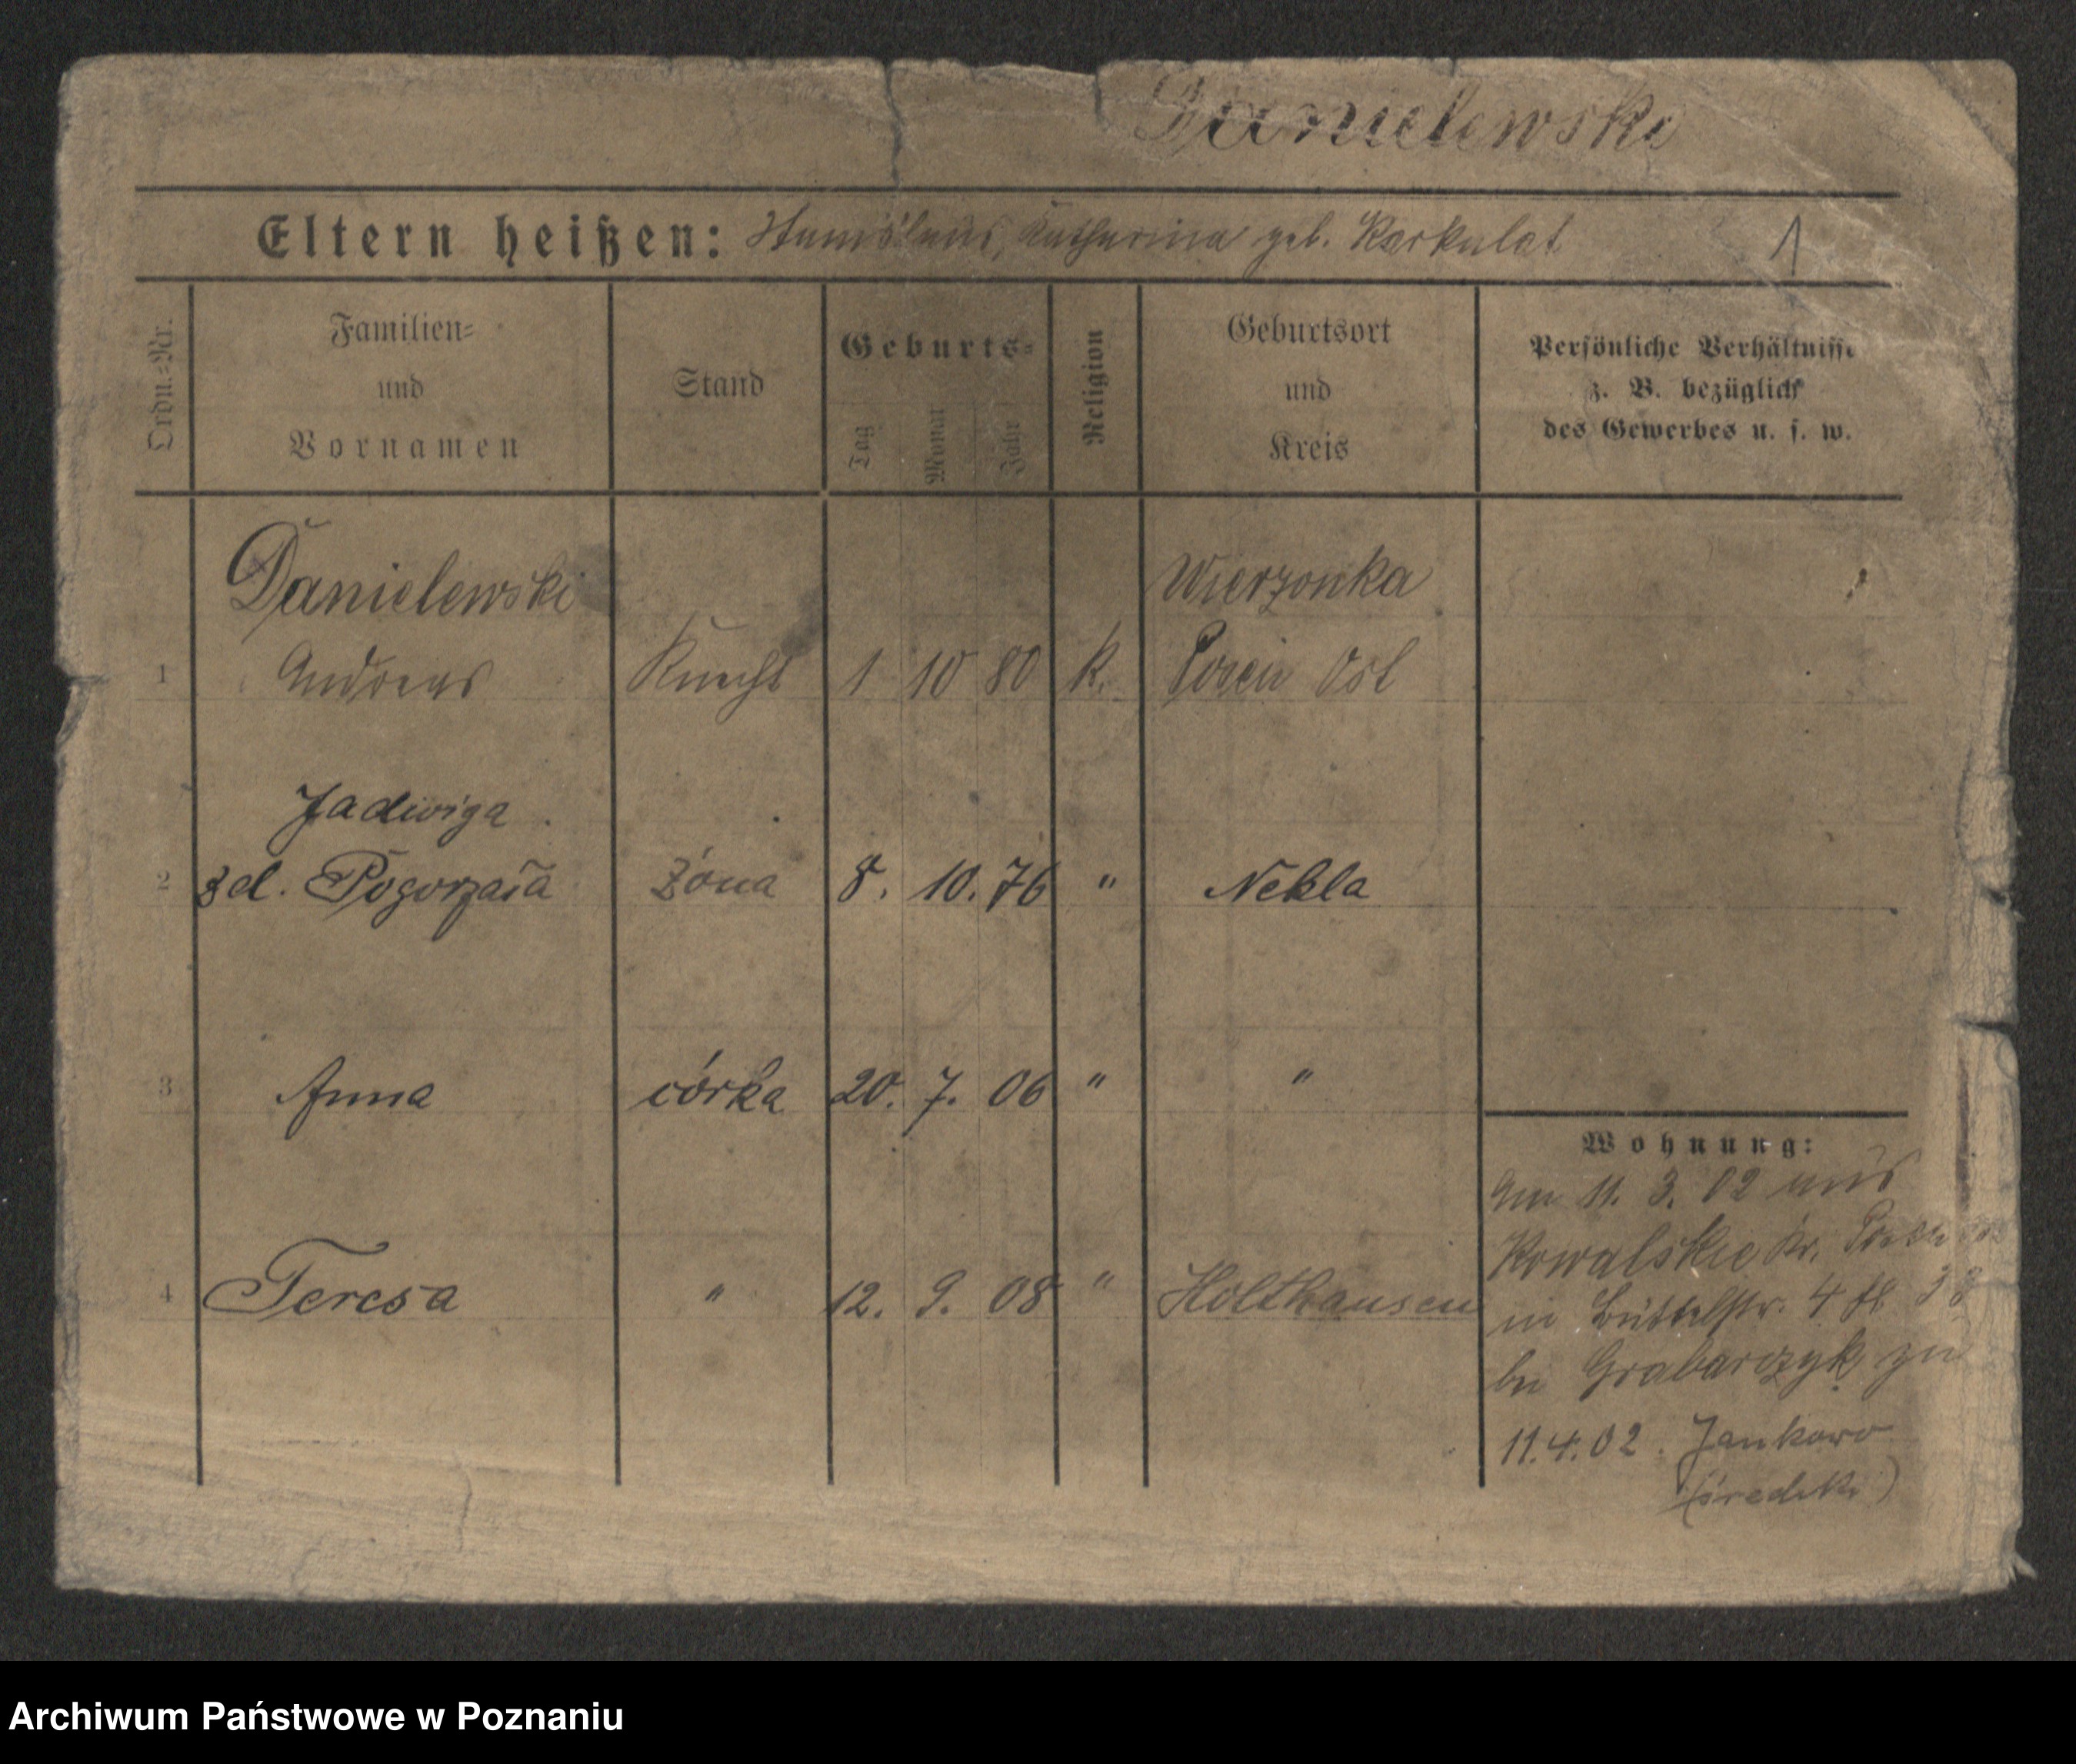 Danielewski
Eltern heißen: Stanislaus, Katharina geb. Karkulat 1
Ordn.-Nr.
Familien-
und
Vornamen
Stand
Geburts-
Tag
Monat
Jahr
Religion
Geburtsort
und
Kreis
Persönliche Verhältnisse
z. B. bezüglich
des Gewerbes u. s. w.
Danielewski Wierzonka
1 Andreas Knecht 1 10 80 K. Posen Ost
Jadwiga
2 zd. Pogorzała żona 8. 10. 76 " Nekla
3 Anna córka 20. 7. 06 " "
4 Teresa " 12. 9. 08 " Holthausen
Wohnung:
Am 11. 3. 02 aus
Kowalskie Kr. Posen
in 4
bei Grabarczyk zu
11.4.02. Jankowo
(średzki)
Archiwum Państwowe w Poznaniu